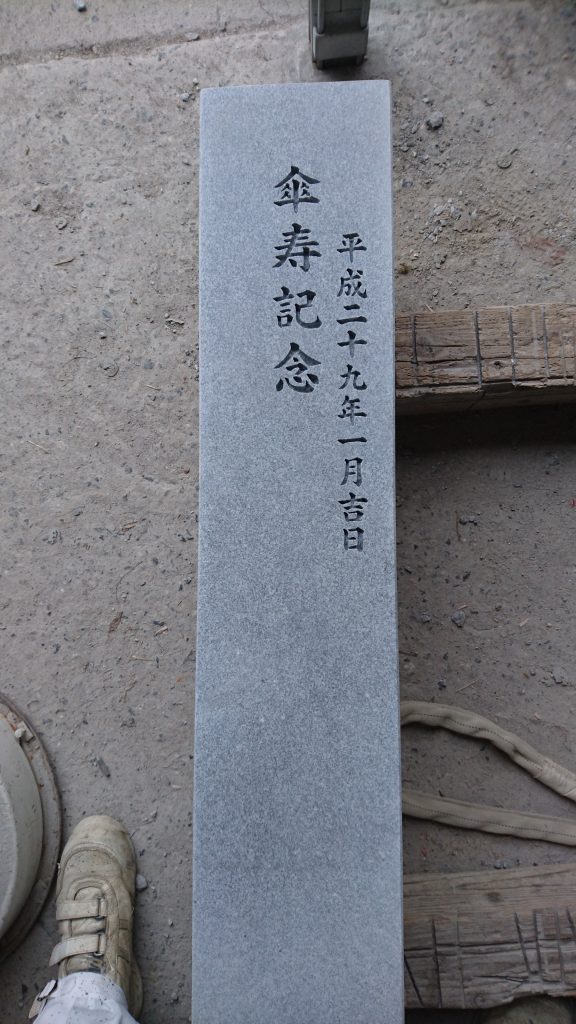 平成二十九年一月吉日
傘寿記念